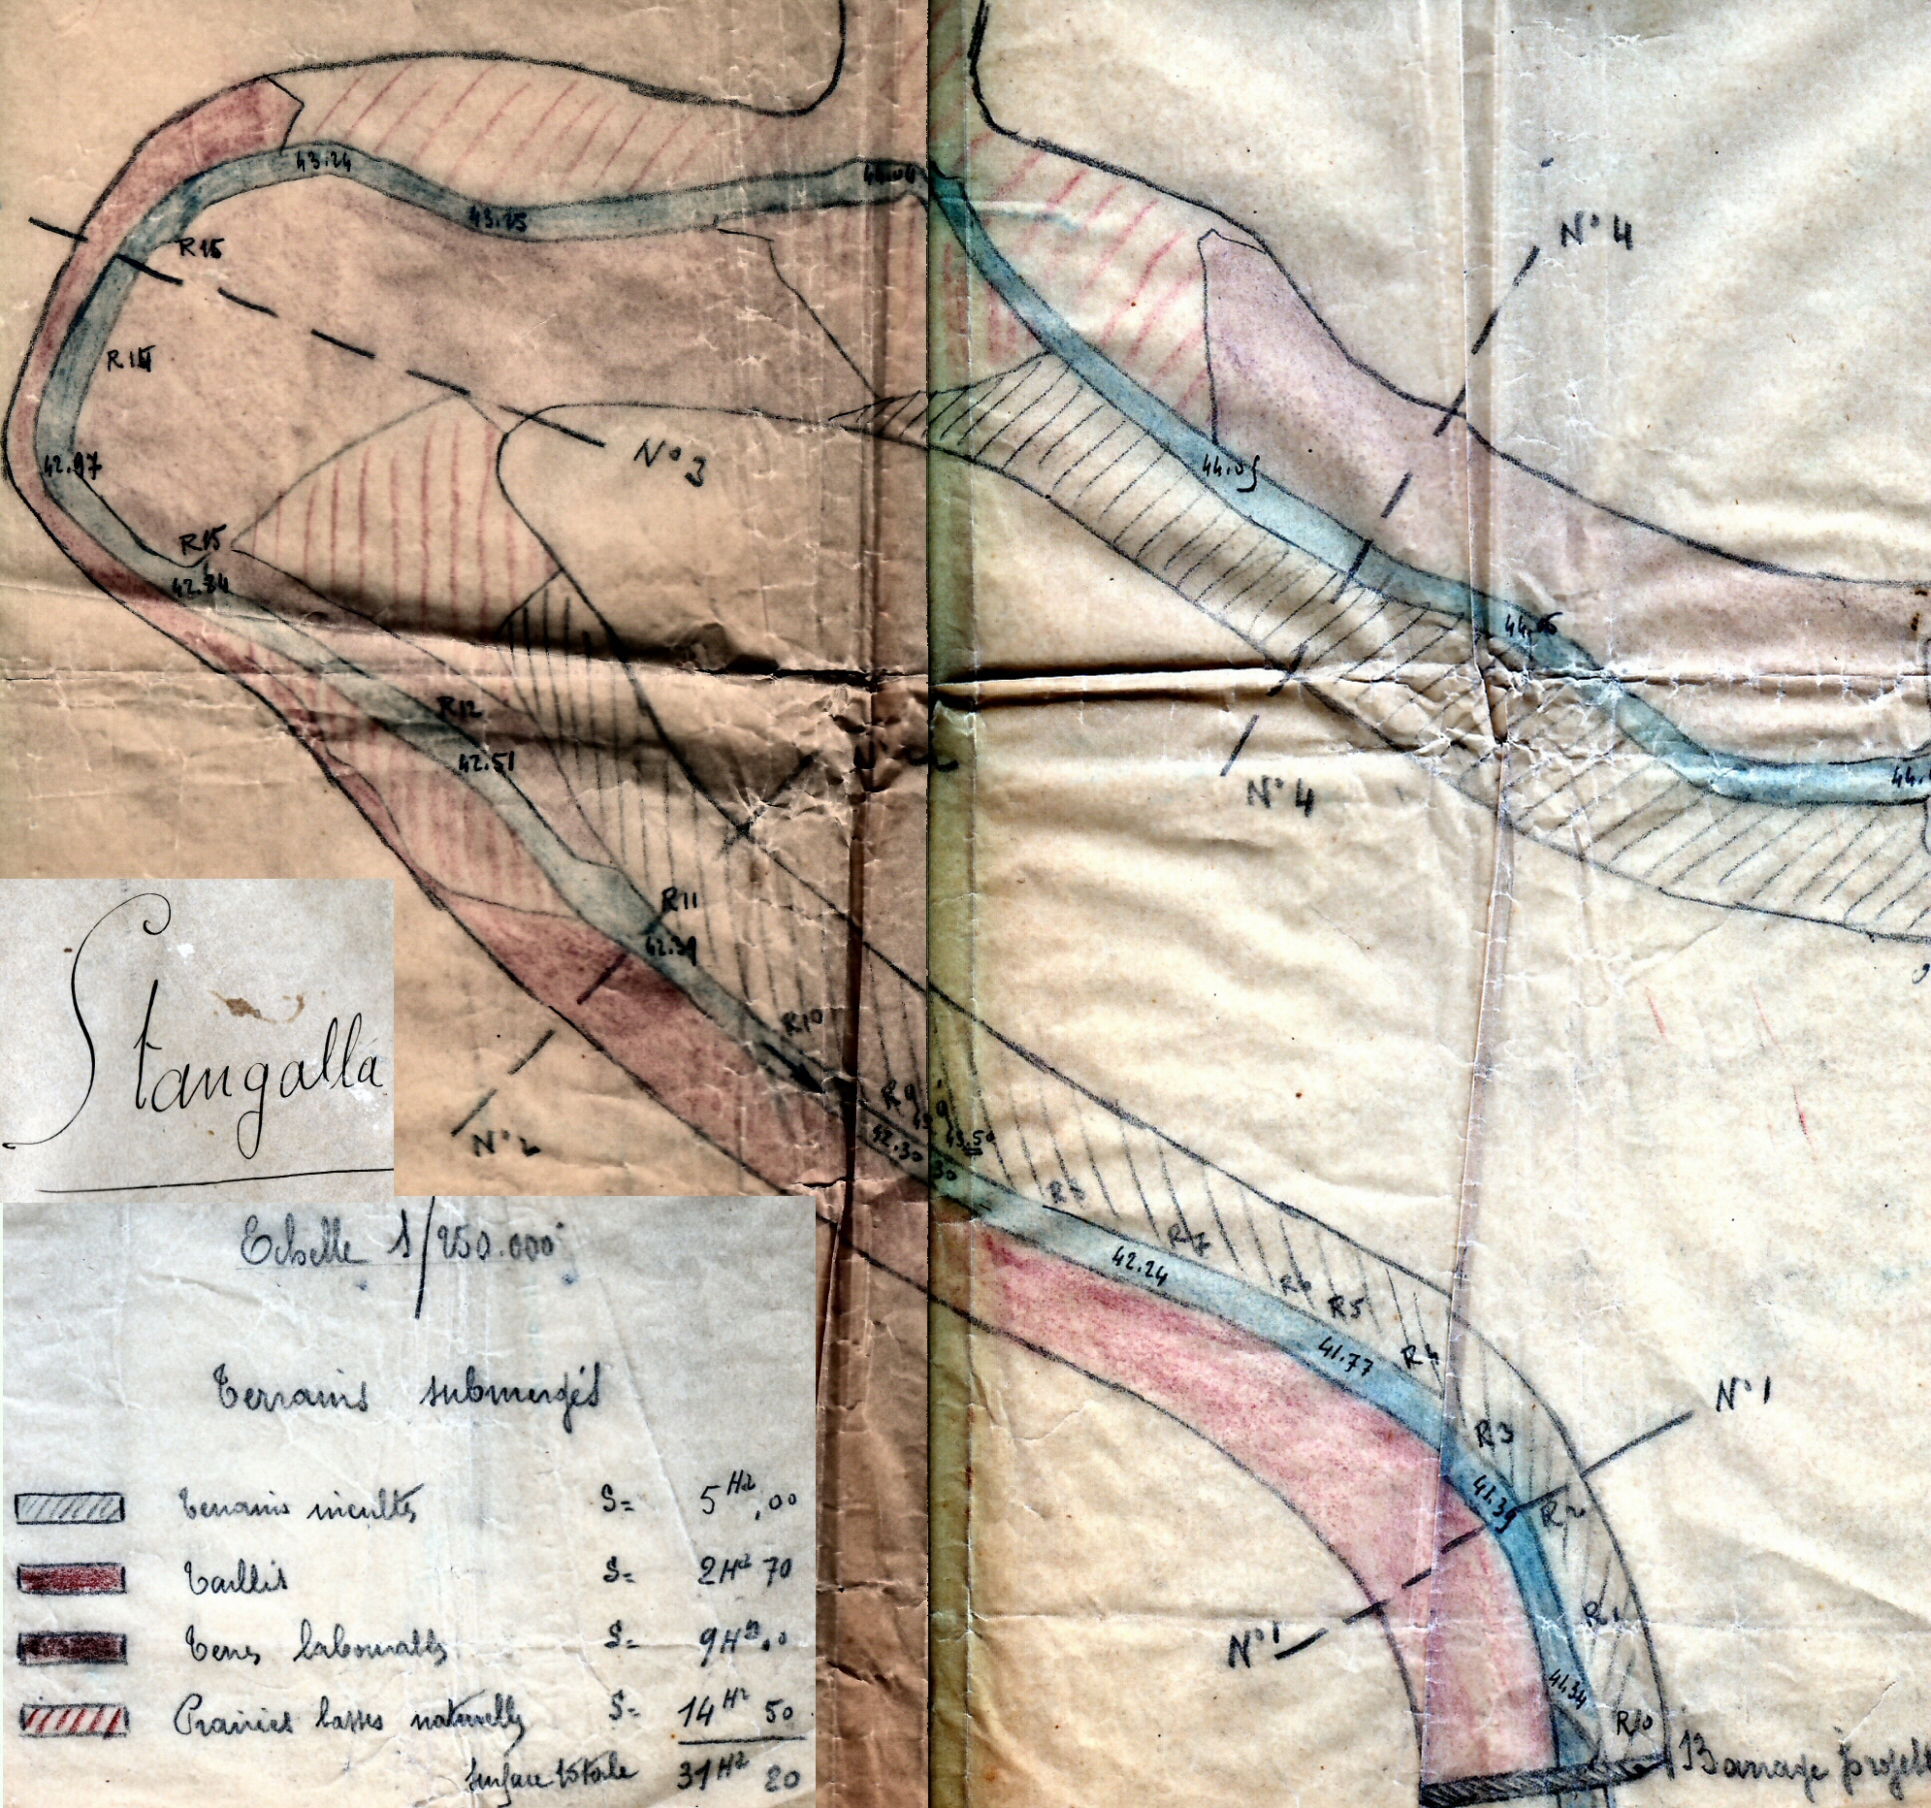 N° 4
43.24
43.25
44.04
R16
R14
N° 3
42.97
44.05
R15
42.84
44.06
R12
42.51
N° 4
44.
R11
42.39
Stangalla
R10
R9
43.50
42.30
30
N° 2
R7
42.24
R6
R5
41.77
R4
N° 1
R3
41.39
R2
R1
N° 1
41.34
R/o
Barrage projeté
Echelle 1/250.000
Terrains submergés
Terrains incultes S= 5 H2,00
Taillis S= 2 H2 70
Terres labourables S= 9 H2.00
Prairies basses naturelles S= 14 H2 50
Surface totale 31 H2 20